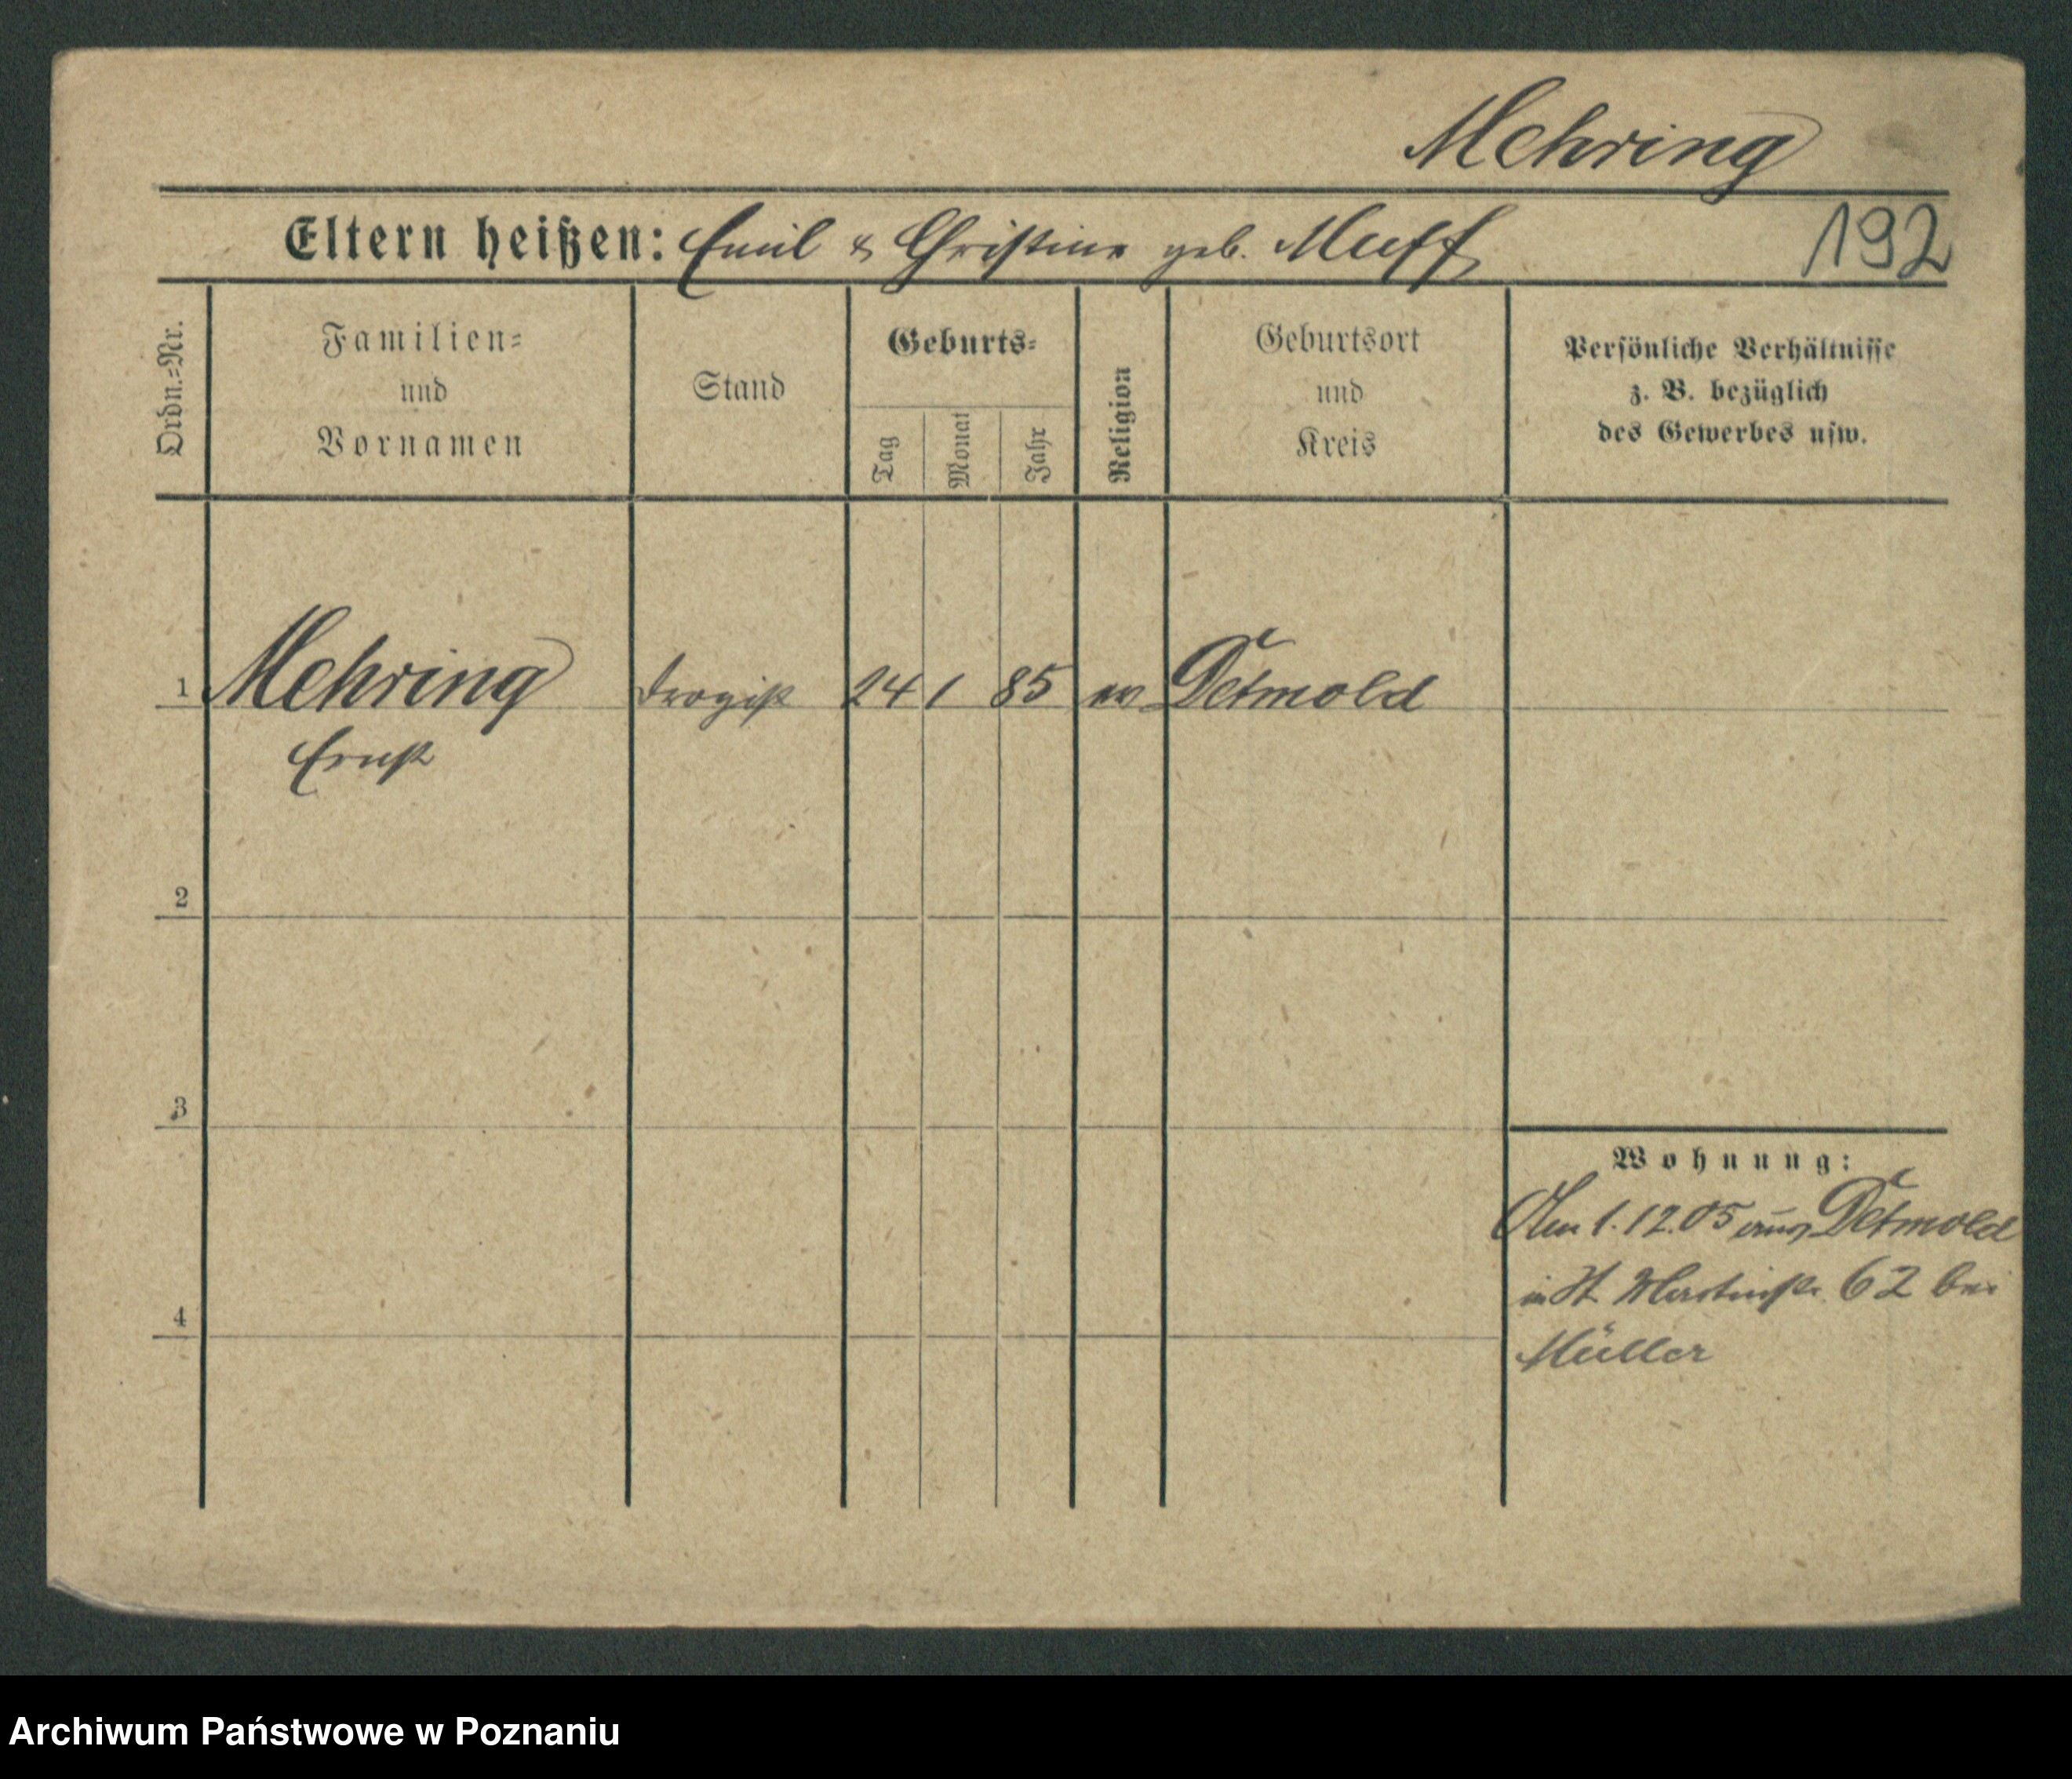 Mehring
Eltern heißen: Emil & Christine geb. Muff
192
Ordn.=Nr.
Familien=
und
Vornamen
Stand
Geburts=
Tag
Monat
Jahr
Religion
Geburtsort
und
Kreis
Persönliche Verhältnisse
z. B. bezüglich
des Gewerbes usw.
1 Mehring Drogist 24 1 85 ev Detmold
Ernst
2
3
Wohnung:
1.12.05 aus Detmold
in St. Martinstr. 62 bei
4
Müller
Archiwum Państwowe w Poznaniu